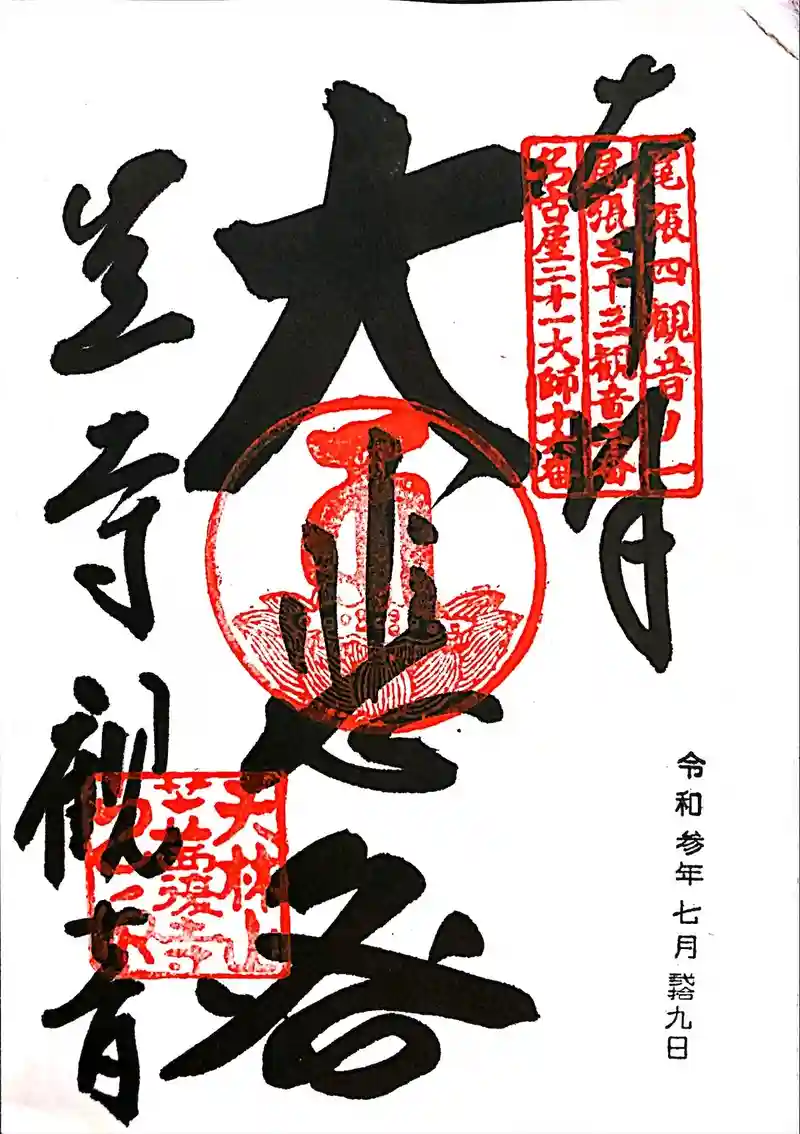 奉拝
尾張四観音ノ一
尾張三十三観音三番
名古屋二十一大師十六番
大悲閣
笠寺観音
天林山
笠覆寺
令和参年七月弐拾九日